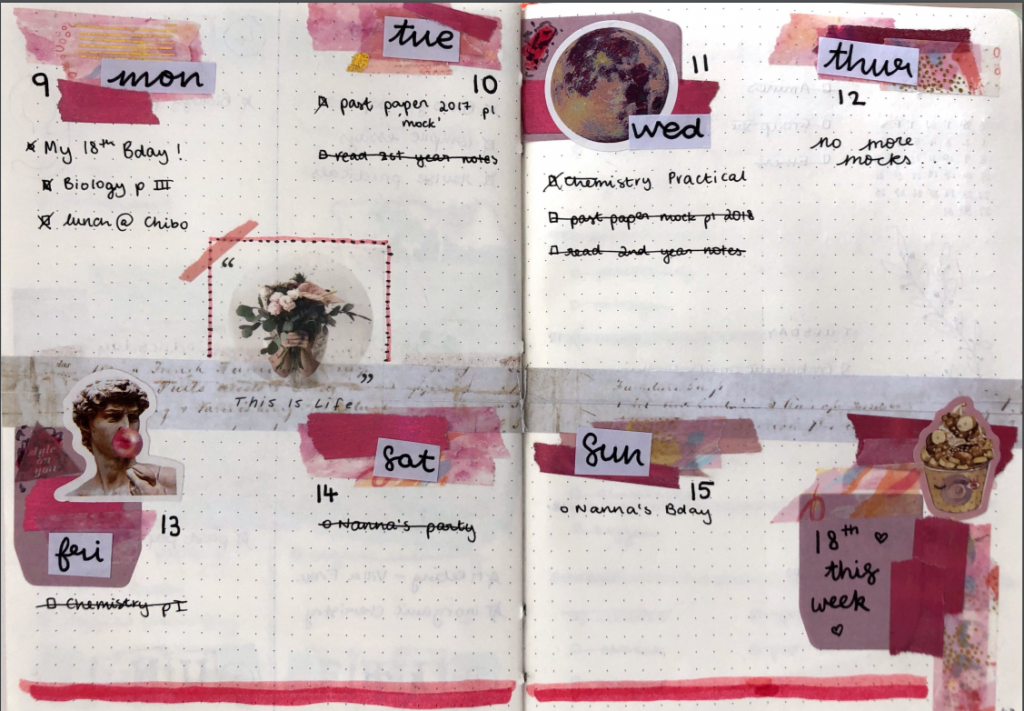 9
mon
My 18th Bday !
Biology p III
lunch @ Chibo
tue
10
past paper 2017 p1
'mock'
read 2st year notes
11
wed
Chemistry Practical
past paper mock p1 2018
read 2nd year notes
thur
12
no more
mocks
“
”
This is Life
style
on
you
13
fri
Chemistry p I
sat
14
Nanna's party
sun
15
Nanna's Bday
18th
this
week